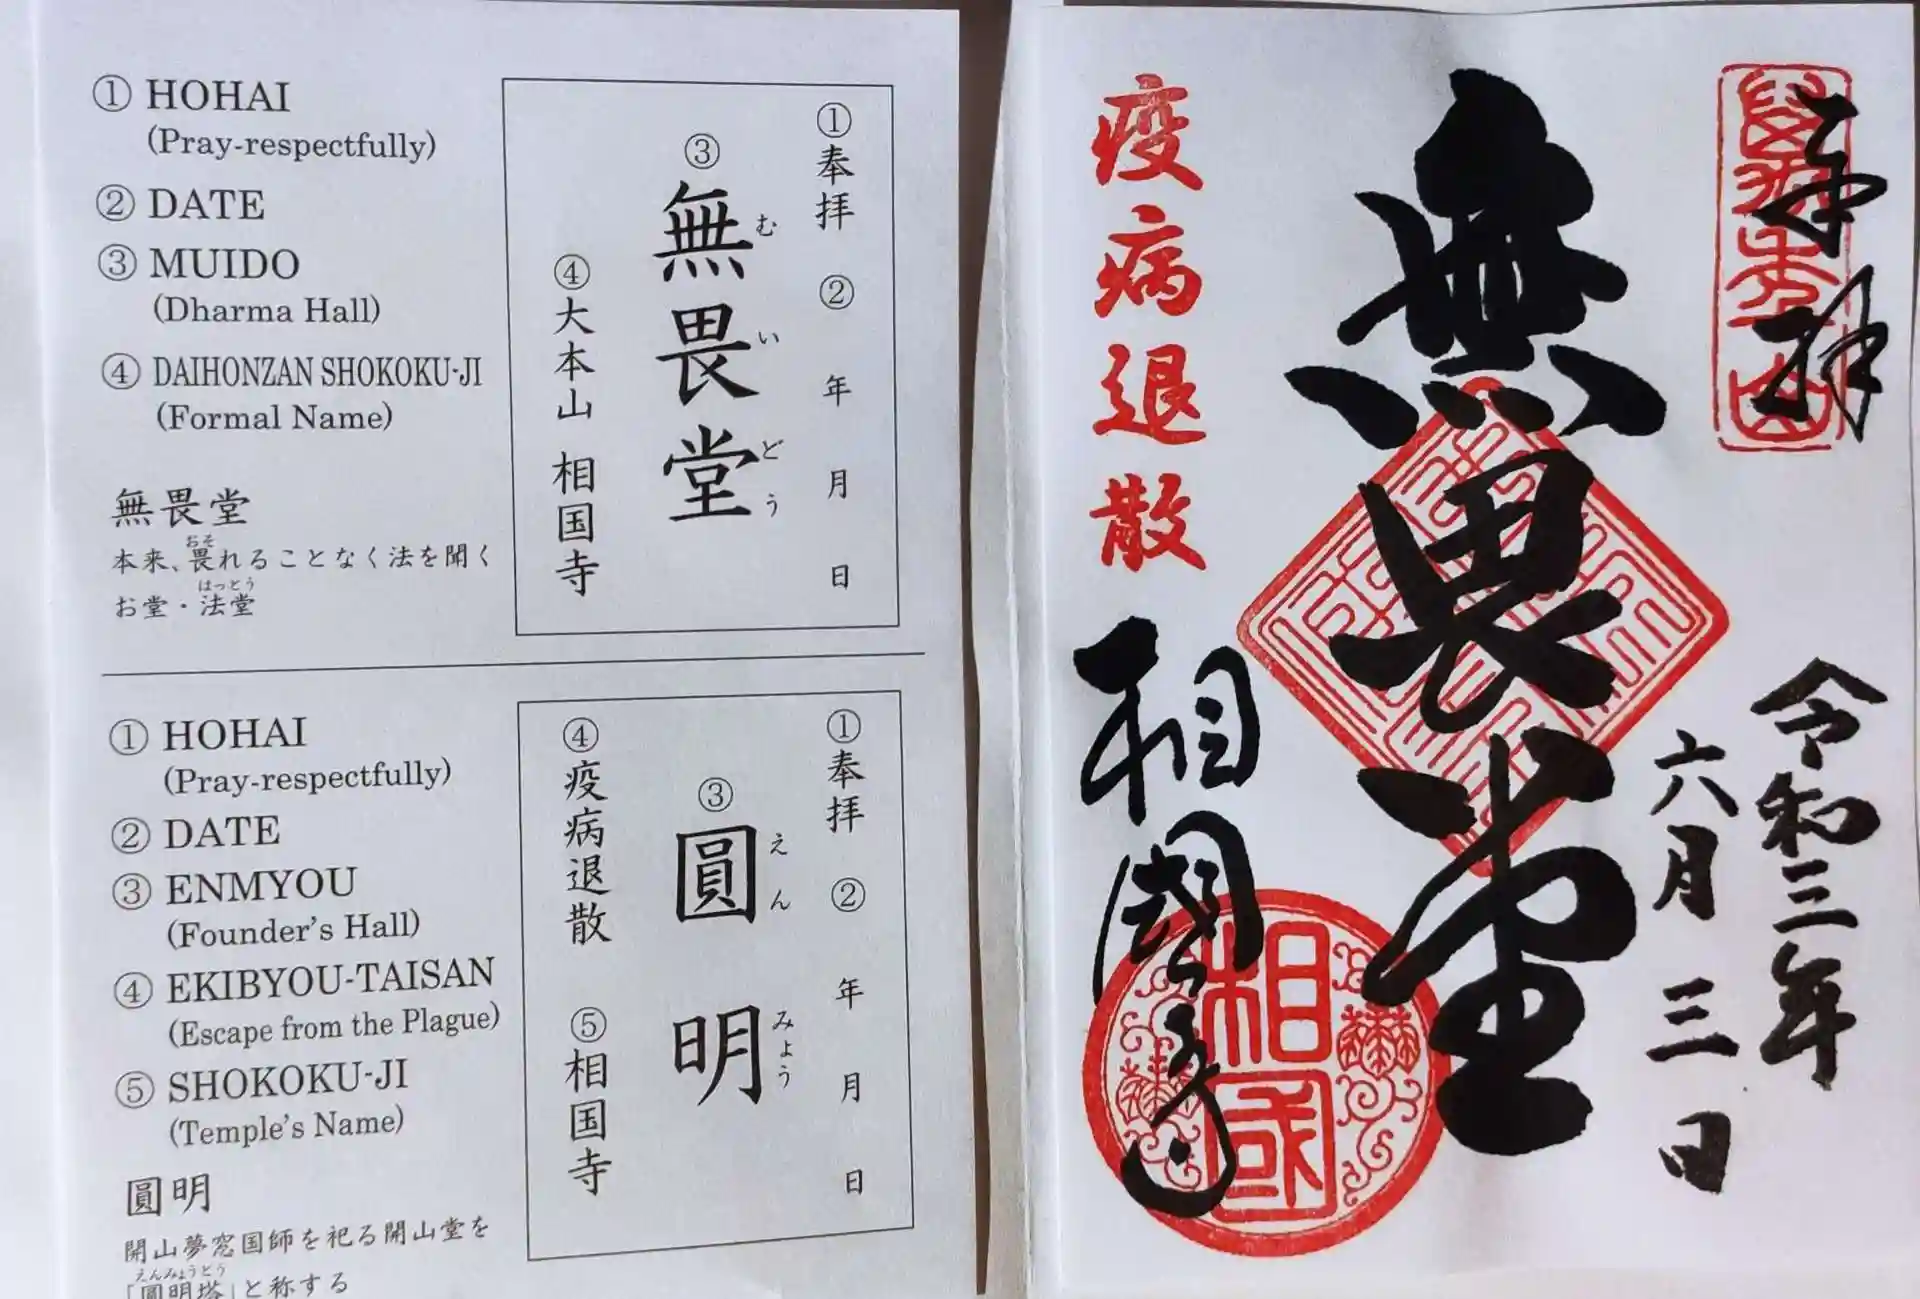 ① HOHAI
(Pray-respectfully)
② DATE
③ MUIDO
(Dharma Hall)
④ DAIHONZAN SHOKOKU-JI
(Formal Name)
無畏堂
おそ
本来、畏れることなく法を聞く
はっとう
お堂・法堂
①奉拝 ② 年 月 日
③無畏堂
むいどう
④大本山 相国寺
① HOHAI
(Pray-respectfully)
② DATE
③ ENMYOU
(Founder's Hall)
④ EKIBYOU-TAISAN
(Escape from the Plague)
⑤ SHOKOKU-JI
(Temple's Name)
圓明
開山夢窓国師を祀る開山堂を
えんみょうとう
「圓明塔」と称する
①奉拝 ② 年 月 日
③圓明
えんみょう
④疫病退散 ⑤相国寺
奉拝
令和三年
六月三日
無畏堂
疫病退散
相國寺
相國